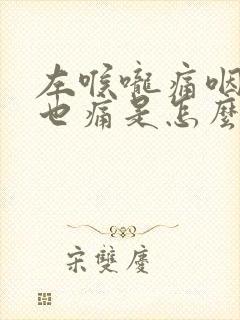 左喉嚨痛咽
也痛是怎麼
宋雙慶